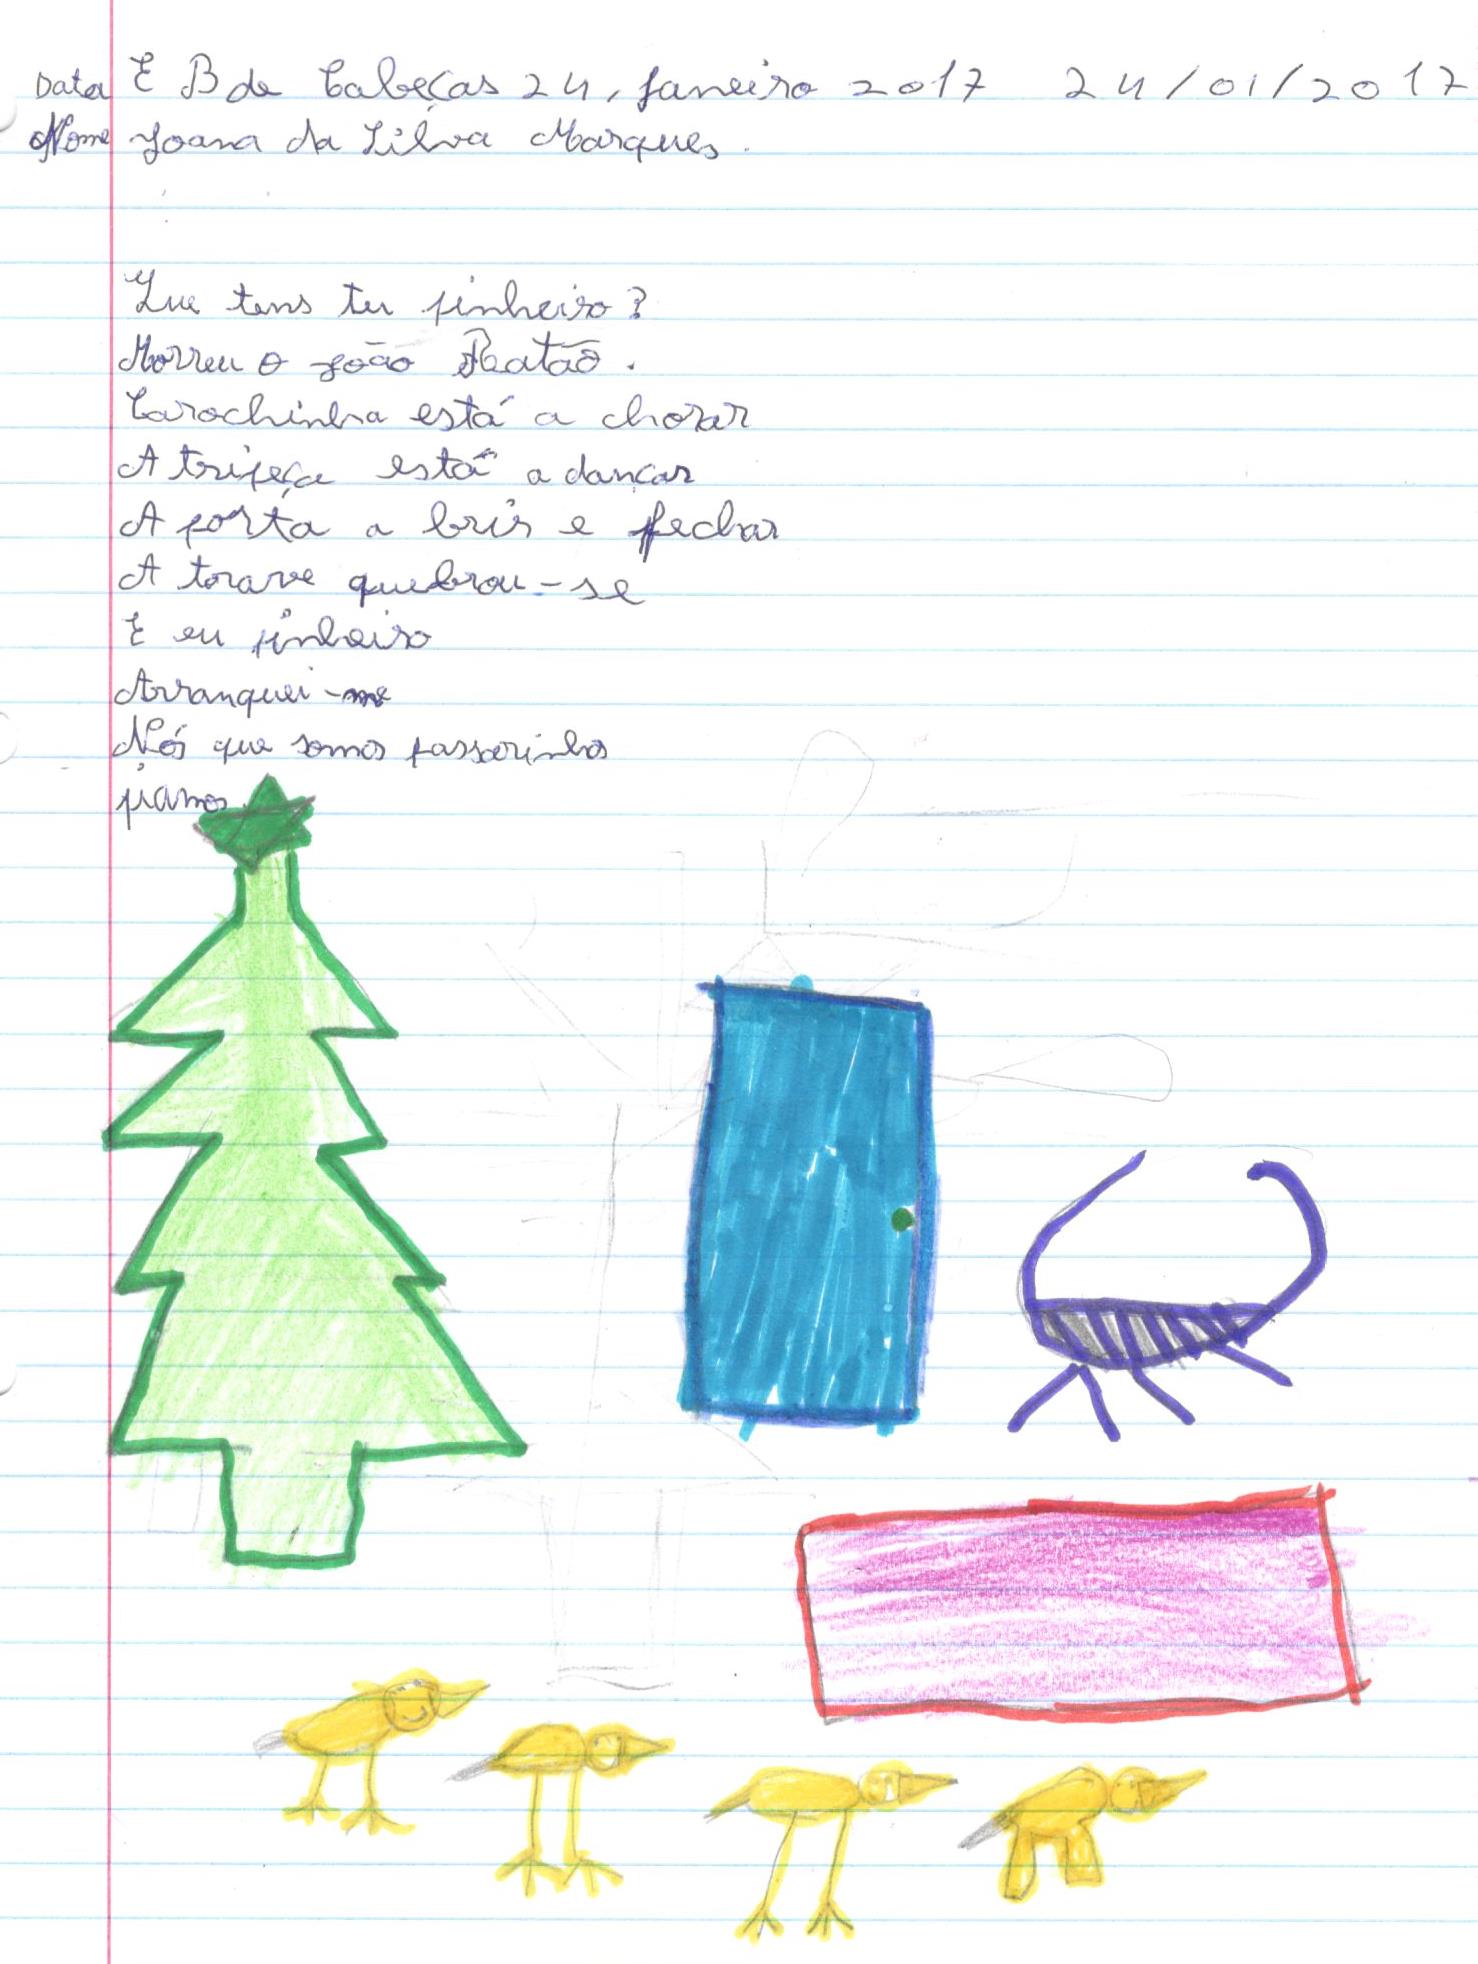 Data E B de Cabeças 24, Janeiro 2017 24/01/2017
Nome Joana da Silva Marques.
Que tens tu pinheiro?
Morreu o João Ratão.
Carochinha está a chorar
A tripeça está a dancar
A porta a brir e fechar
A trave quebrou-se
E eu pinheiro
Arranquei-me
Nós que somos passarinhos
piamos